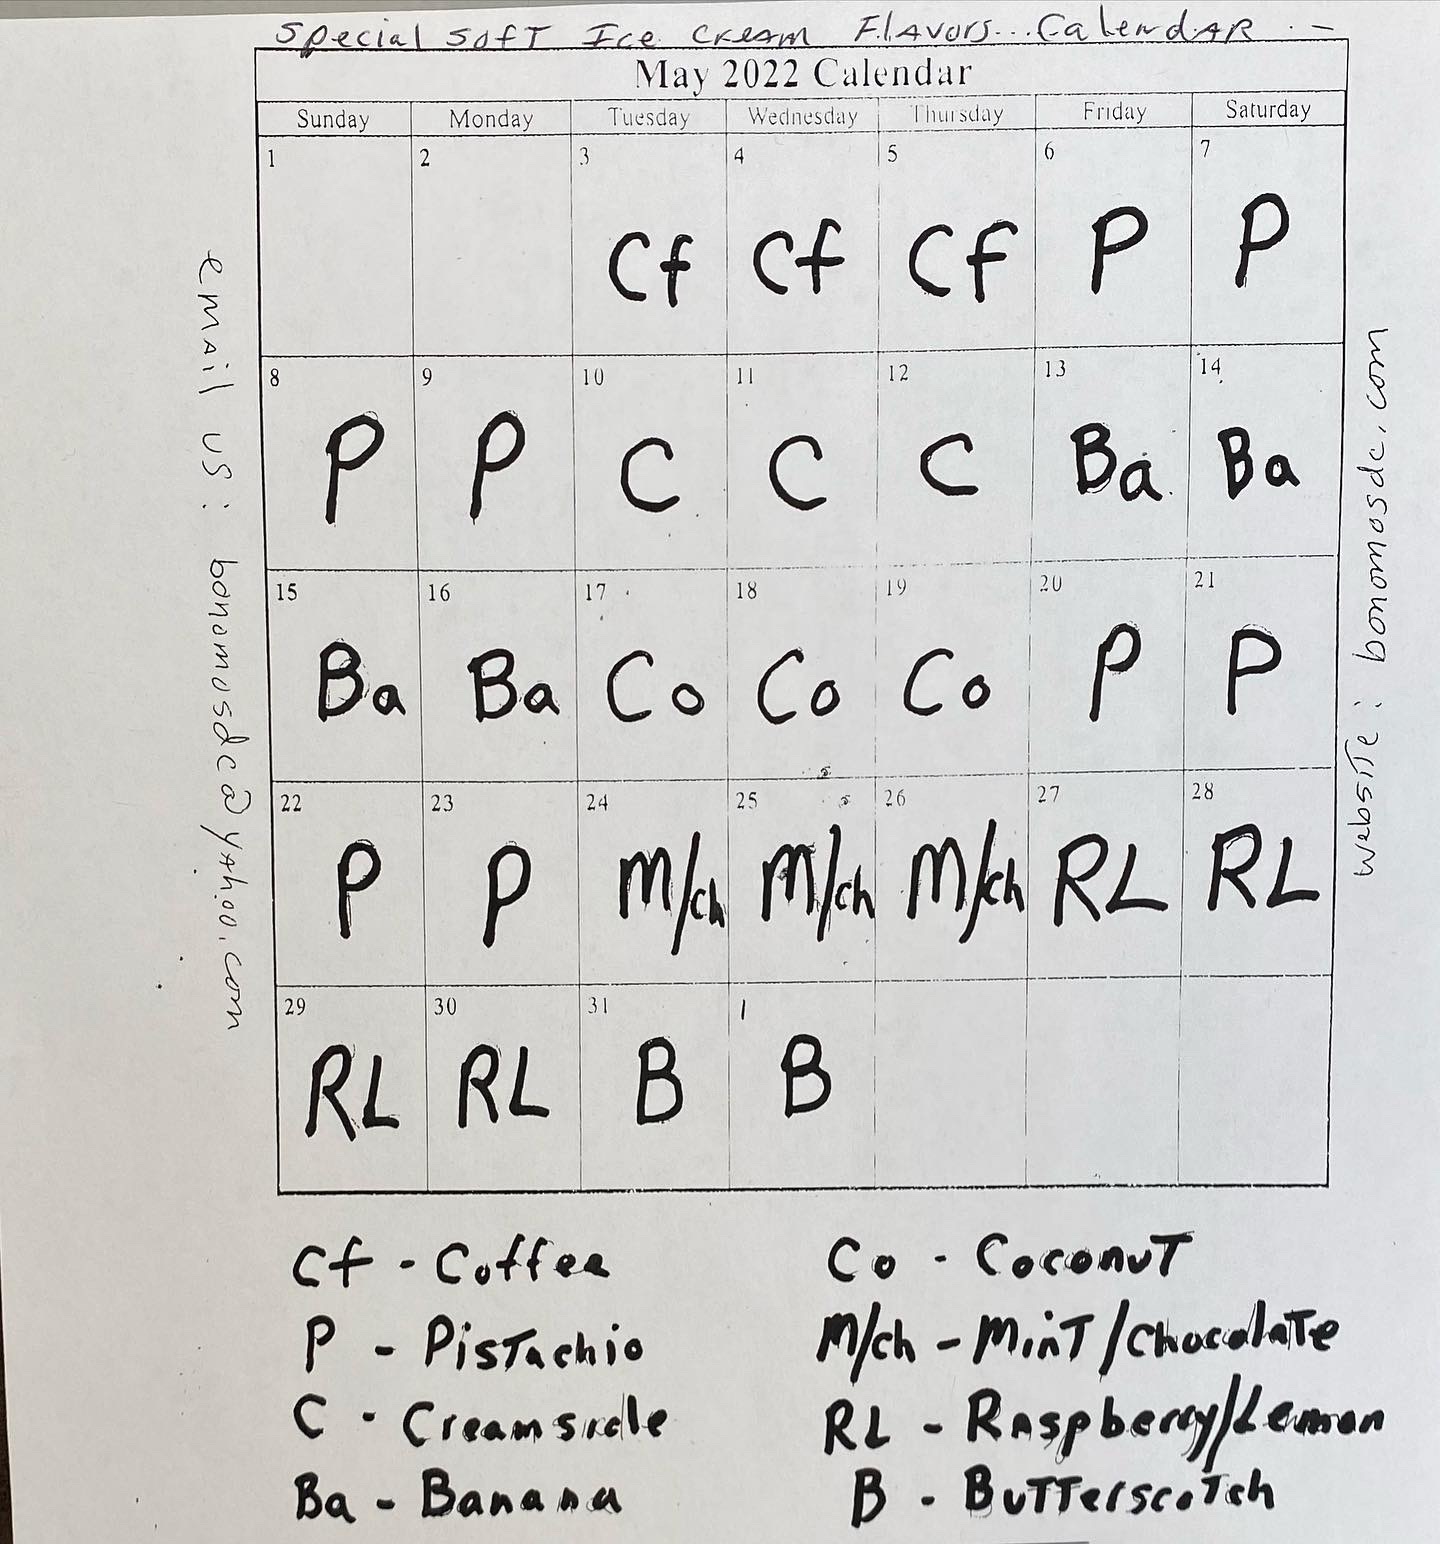 Special Soft Ice Cream Flavors... Calendar
May 2022 Calendar
Sunday Monday Tuesday Wednesday Thursday Friday Saturday
1 2 3 4 5 6 7
Cf Cf Cf P P
8 9 10 11 12 13 14
P P C C C Ba Ba
15 16 17 18 19 20 21
Ba Ba Co Co Co P P
22 23 24 25 26 27 28
P P M/ch M/ch M/ch RL RL
29 30 31 1
RL RL B B
email us: bonomosdc@yahoo.com
website: bonomosdc.com
Cf - Coffee
P - Pistachio
C - Creamsicle
Ba - Banana
Co - Coconut
M/ch - Mint/Chocolate
RL - Raspberry/Lemon
B - Butterscotch